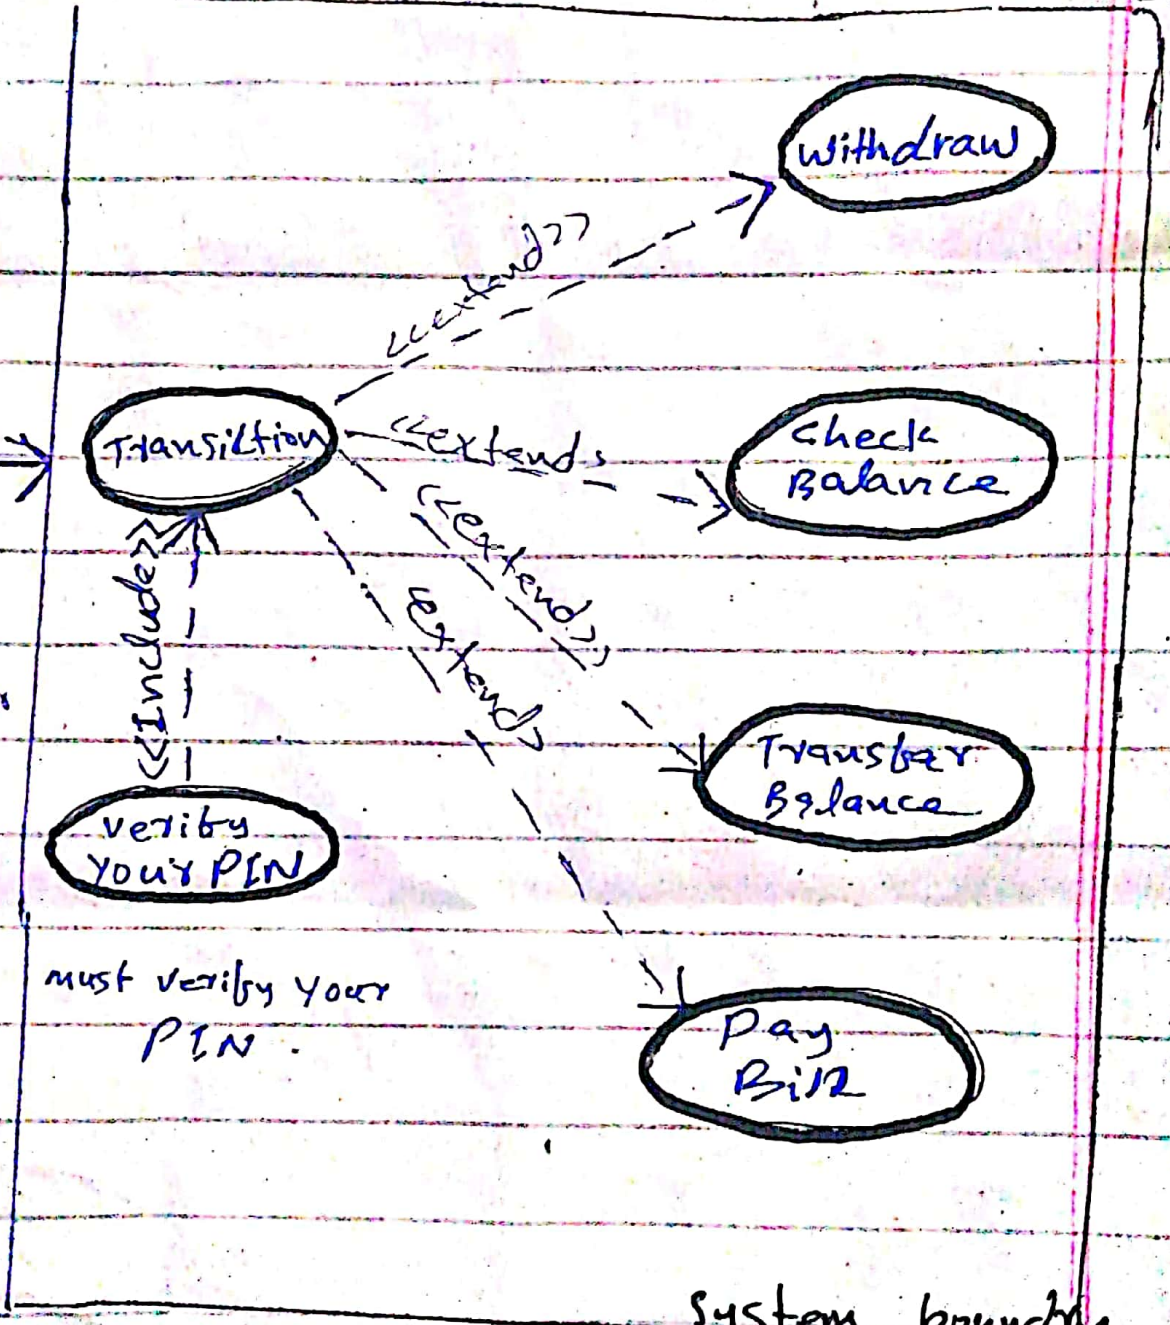 withdraw
<<extend>>
Transiction
<<extends
check
Balance
<<extend>>
<extend>
<<Include>>
Transfer
Balance
verify
your PIN
must verify your
PIN.
Pay
Bill
System boundry